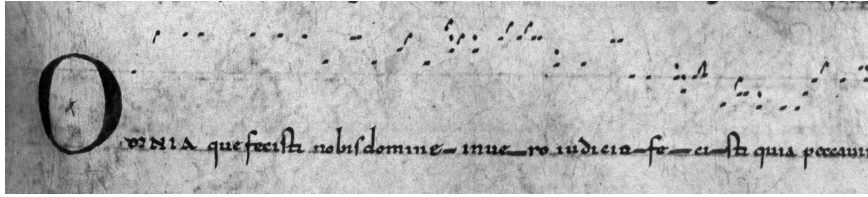 OMNIA que fecisti nobis domine in uero iudicio fecisti quia peccaui